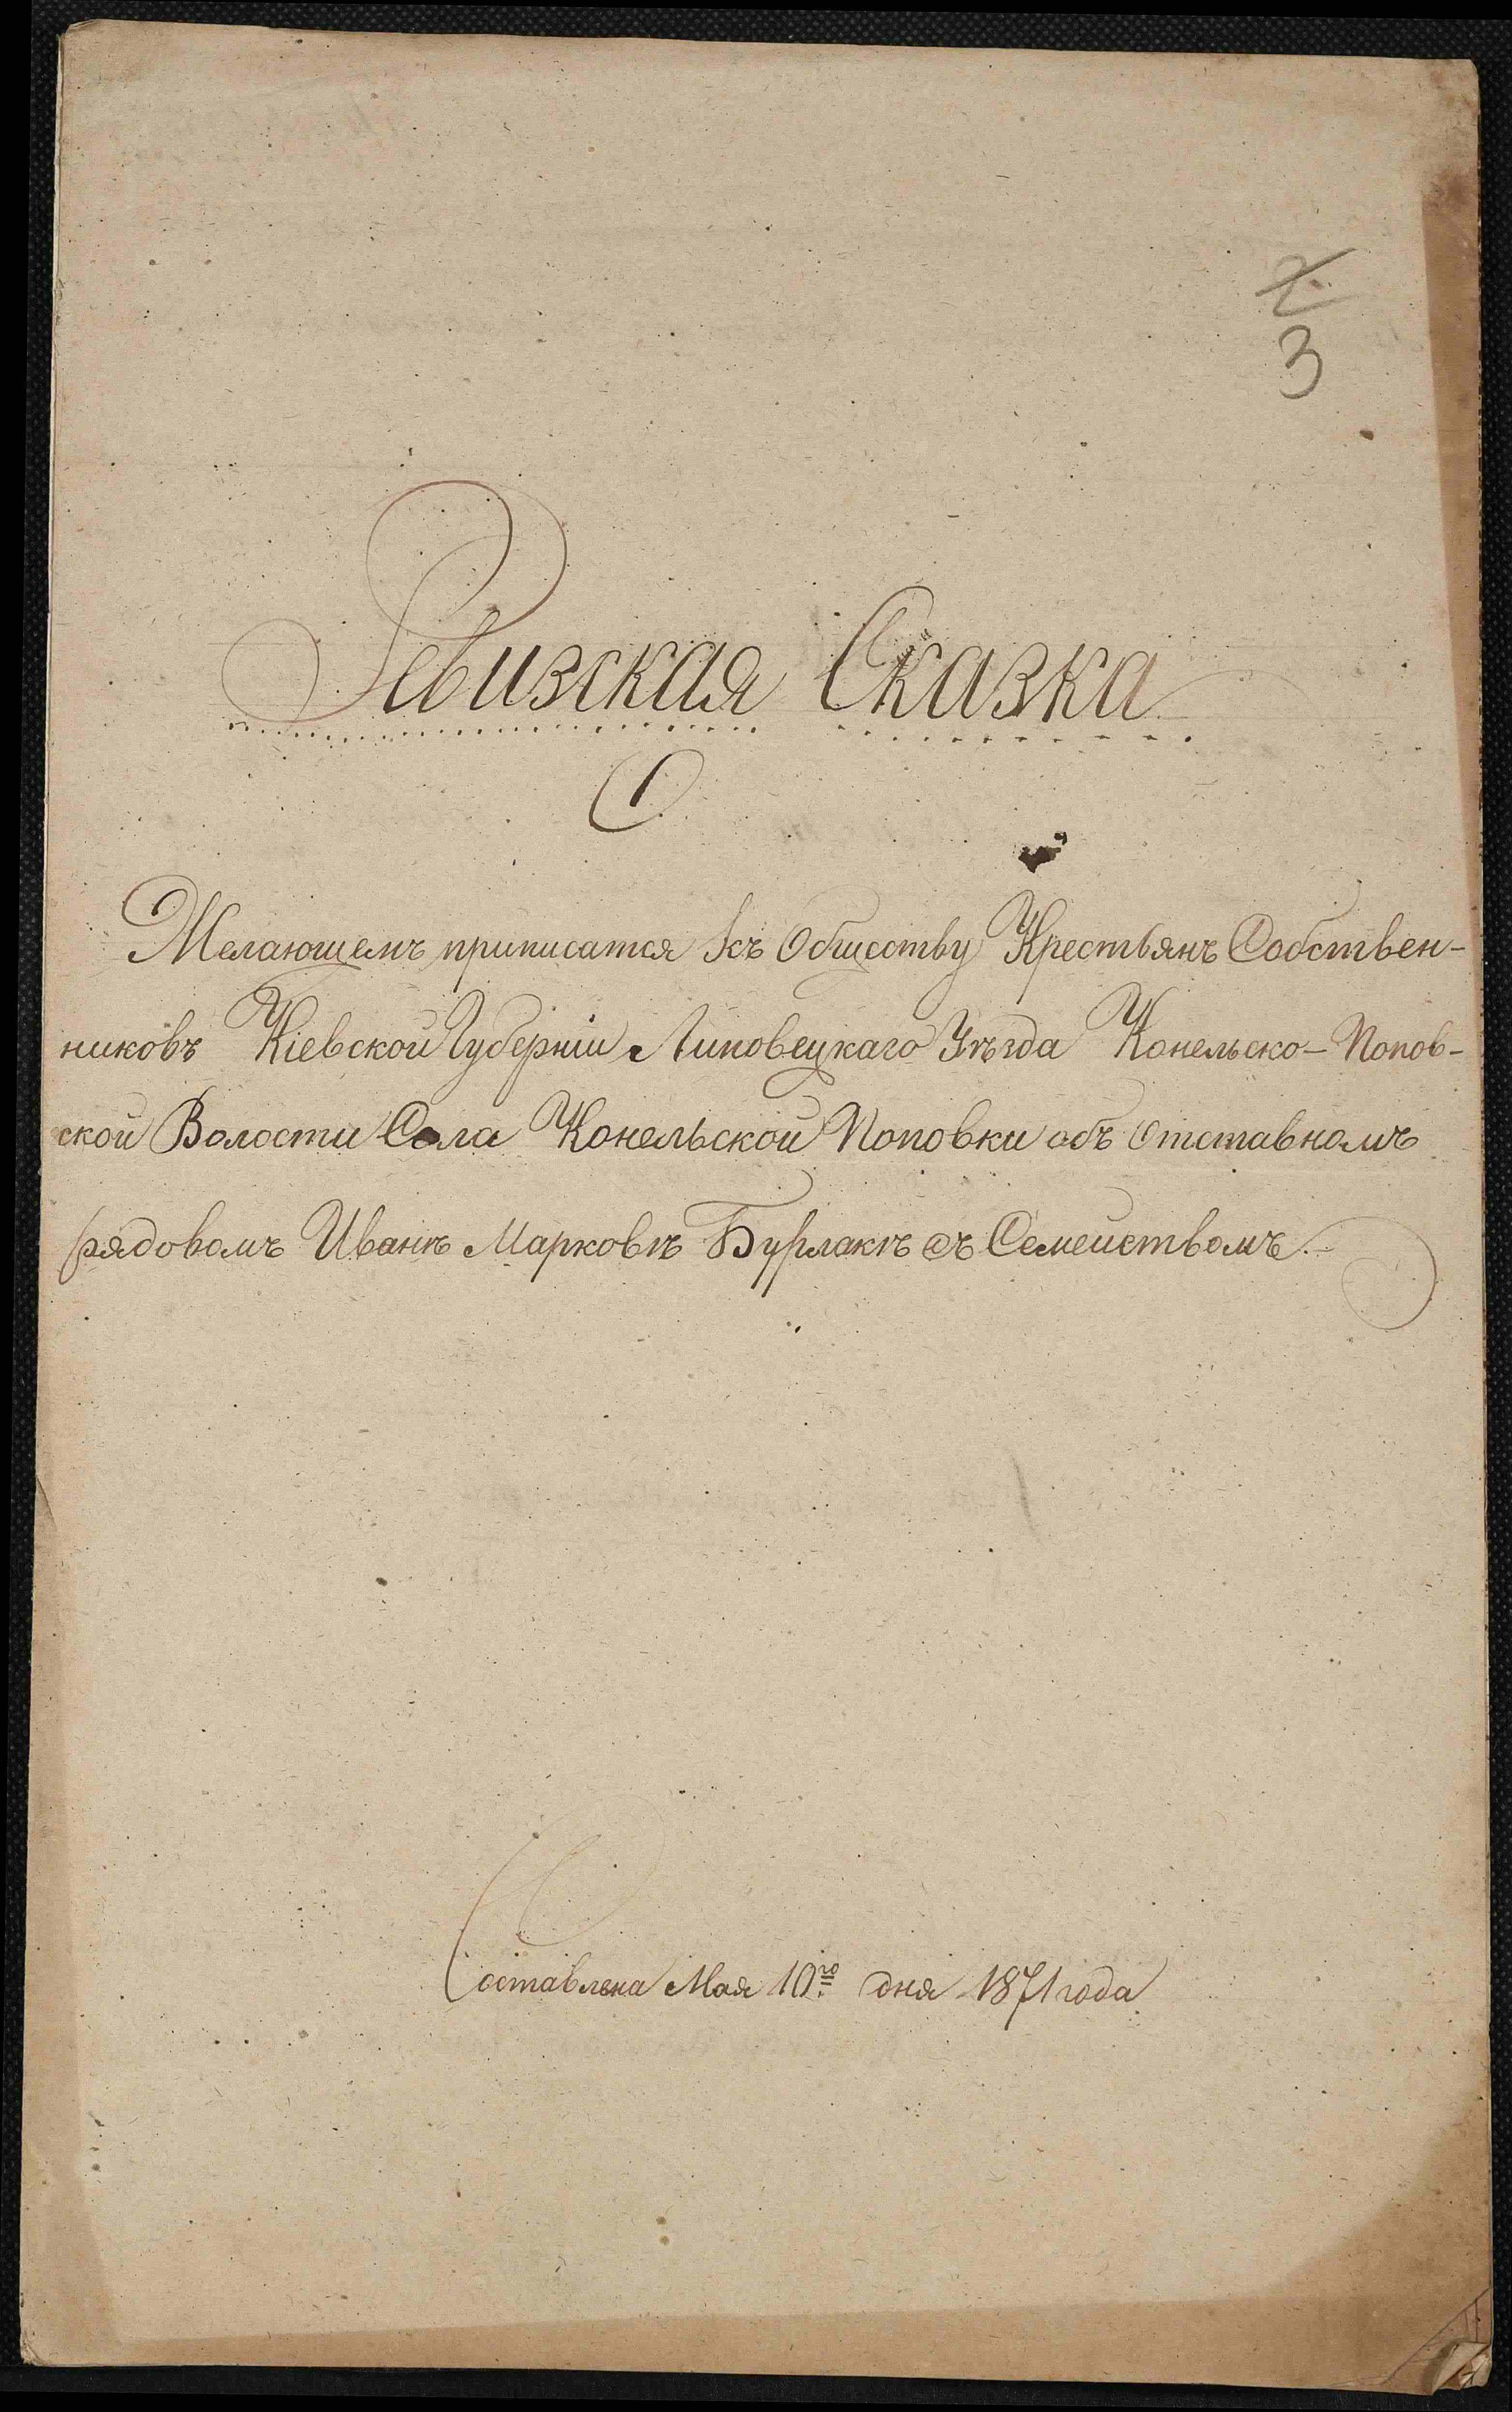 2
3
Ревизская Сказка
О
Желающемъ приписатся къ Обществу Крестьянъ Собствен-
никовъ Кіевской Губерніи Липовецкаго Уѣзда Конельско-Попов-
ской Волости Села Конельской Поповки объ Отставномъ
рядовомъ Иванѣ Марковѣ Бурлакѣ съ Семействомъ.
Составлена Мая 10го дня 1871 года